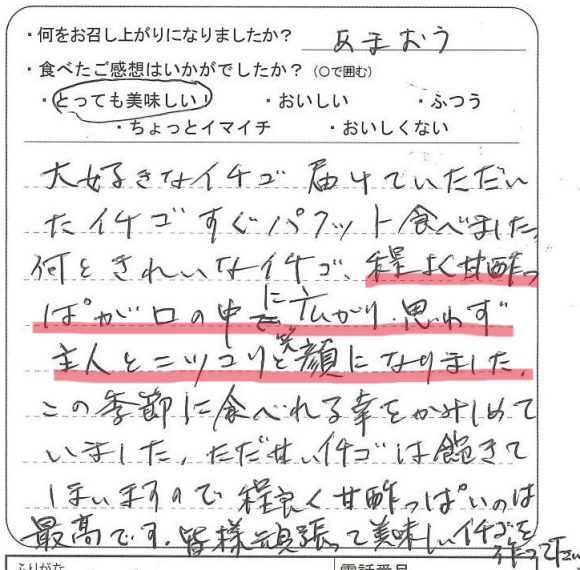 ・何をお召し上がりになりましたか? あまおう
・食べたご感想はいかがでしたか?(○で囲む)
・とっても美味しい! ・おいしい ・ふつう
・ちょっとイマイチ ・おいしくない
大好きなイチゴ 届けていただい
たイチゴすぐパクット食べました。
何ときれいなイチゴ、程よく甘酢っ
ぱが口の中に広がり、思わず
主人とニッコリと笑顔になりました。
この季節に食べれる幸をかみしめて
いました。ただ甘いイチゴは飽きて
しまいますので程良く甘酢っぱいのは
最高です。皆様頑張って美味しいイチゴを
作って下さい
ふりがな 電話番号